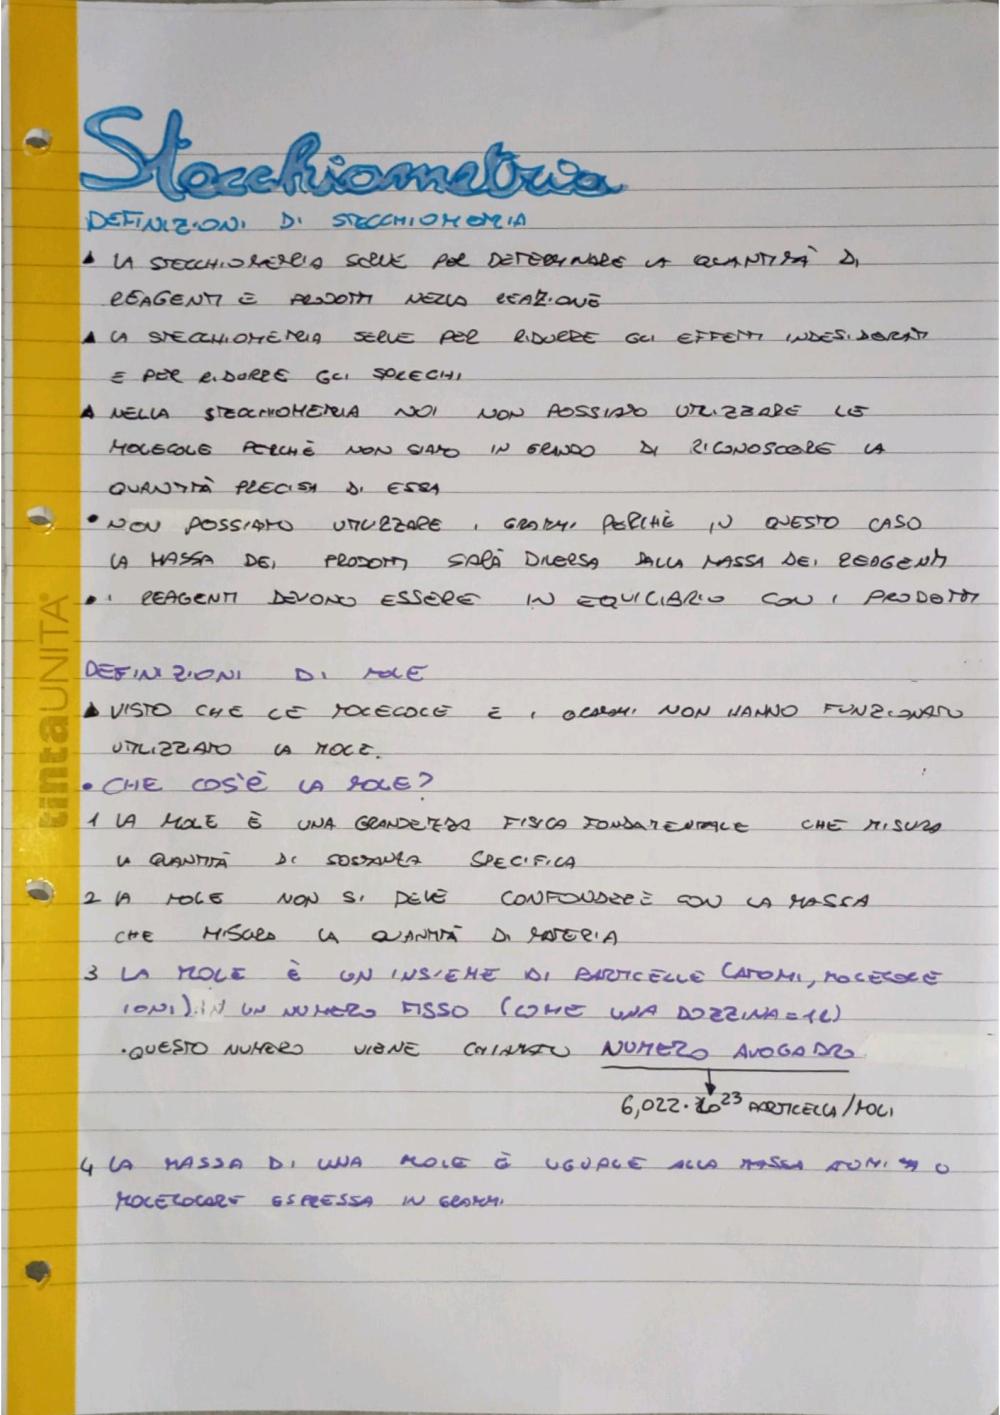 Stecchiometria
DEFINIZIONI DI STECCHIOMETRIA
LA STECCHIOMETRIA SERVE PER DETERMINARE LA QUANTITÀ DI
REAGENTI E PRODOTTI NELLA REAZIONE
LA STECCHIOMETRIA SERVE PER RIDURRE GLI EFFETTI INDESIDERATI
E PER RIDURRE GLI SPRECHI
NELLA STECCHIOMETRIA NOI NON POSSIAMO UTILIZZARE LE
MOLECOLE PERCHÈ NON SIAMO IN GRADO DI RICONOSCERE LA
QUANTITÀ PRECISA DI ESSA
• NON POSSIAMO UTILIZZARE I GRAMMI PERCHÈ IN QUESTO CASO
LA MASSA DEI PRODOTTI SARÀ DIVERSA DALLA MASSA DEI REAGENTI
• I REAGENTI DEVONO ESSERE IN EQUILIBRIO CON I PRODOTTI
DEFINIZIONI DI MOLE
VISTO CHE LE MOLECOLE E I GRAMMI NON HANNO FUNZIONATO
UTILIZZIAMO LA MOLE.
• CHE COS'È LA MOLE?
1 LA MOLE È UNA GRANDEZZA FISICA FONDAMENTALE CHE MISURA
LA QUANTITÀ DI SOSTANZA SPECIFICA
2 LA MOLE NON SI DEVE CONFONDERE CON LA MASSA
CHE MISURA LA QUANTITÀ DI MATERIA
3 LA MOLE È UN INSIEME DI PARTICELLE (ATOMI, MOLECOLE
IONI) IN UN NUMERO FISSO (COME UNA DOZZINA = 12)
• QUESTO NUMERO VIENE CHIAMATO NUMERO AVOGADRO
6,022 · 10²³ PARTICELLA/MOLI
4 LA MASSA DI UNA MOLE È UGUALE ALLA MASSA O
MOLECOLARE ESPRESSA IN GRAMMI.
tintaUNITA®